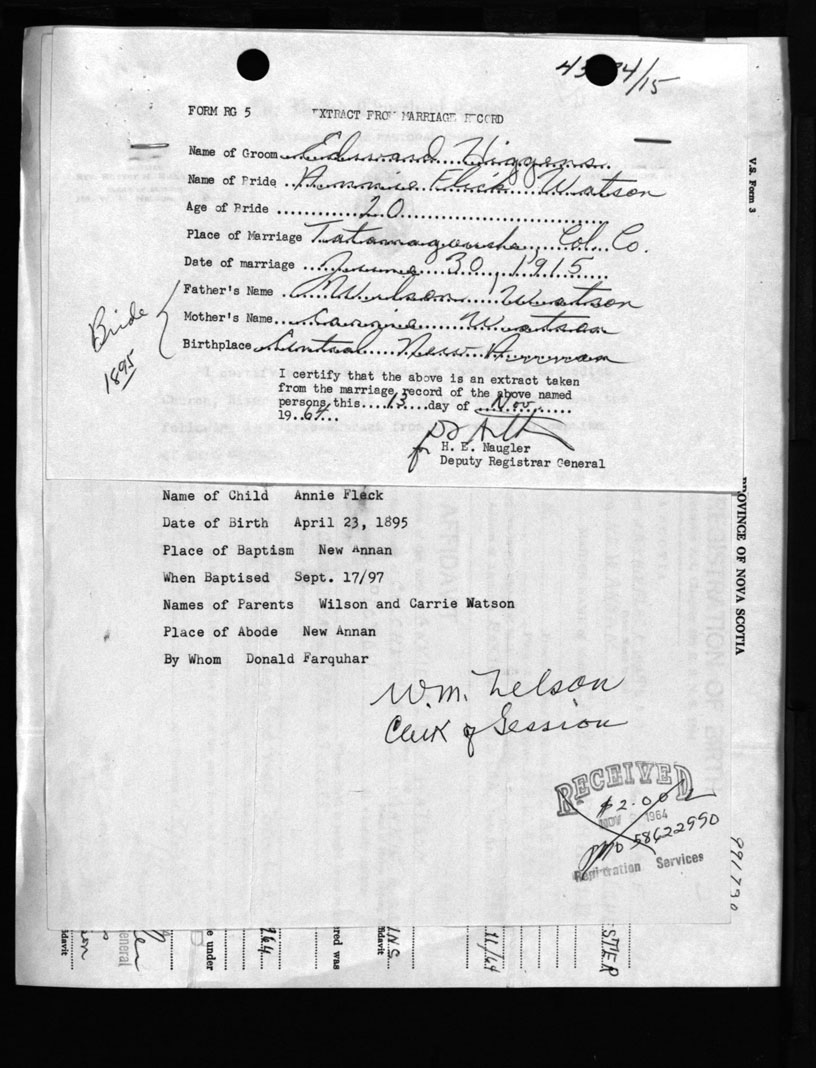 /15
FORM RG 5 EXTRACT FROM MARRIAGE RECORD
Name of Groom Edward Higgens
Name of Bride Annie Fleck Watson
Age of Bride 20
Place of Marriage Tatamagouche, Col. Co.
Date of marriage June 30, 1915
Father's Name Wilson Watson
Mother's Name Carrie Watson
Birthplace Central New Annan
Bride
1895
I certify that the above is an extract taken
from the marriage record of the above named
persons this 13 day of Nov.
1964
for H. E. Naugler
Deputy Registrar General
V.S. Form 3
Name of Child Annie Fleck
Date of Birth April 23, 1895
Place of Baptism New Annan
When Baptised Sept. 17/97
Names of Parents Wilson and Carrie Watson
Place of Abode New Annan
By Whom Donald Farquhar
PROVINCE OF NOVA SCOTIA
W.M. Nelson
Clerk of Session
RECEIVED
$2.00
NOV 1964
MO 58622990
Registration Services
991730
General
fidavit
e under
964
ered was
INS.
fidavit
11/64
STER